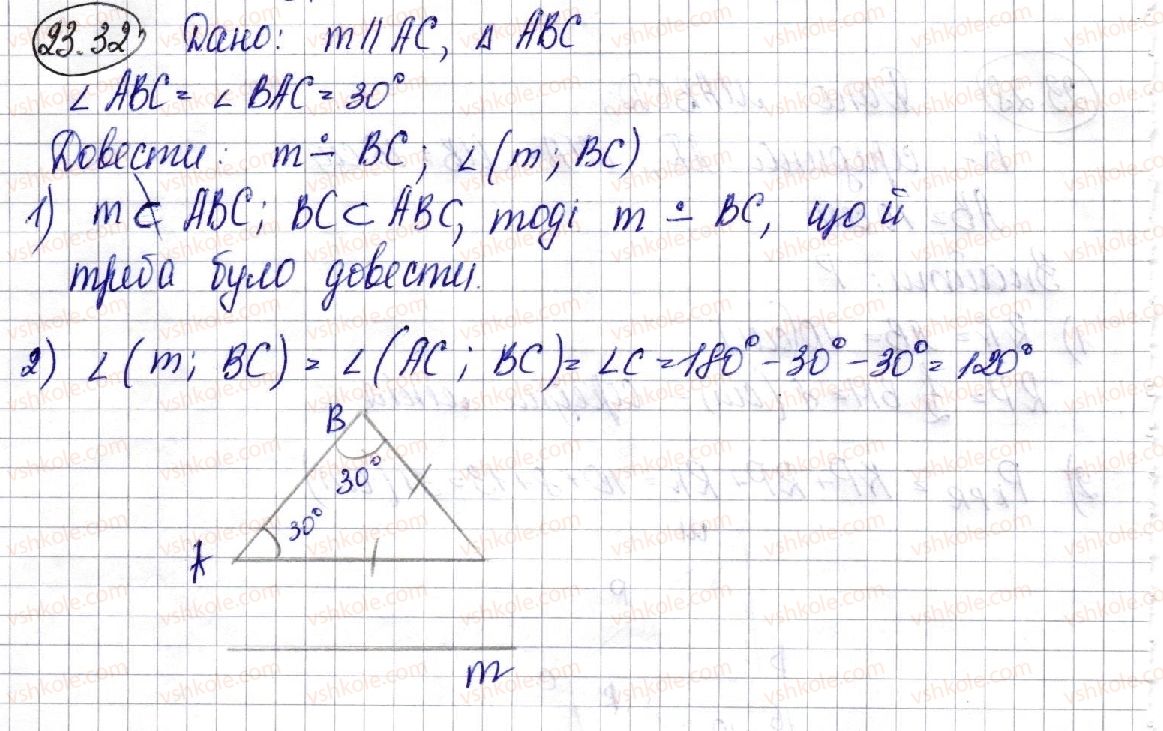 23.32 Дано: m || AC, △ ABC
∠ ABC = ∠ BAC = 30°
Довести: m ∸ BC; ∠(m; BC)
1) m ⊄ ABC; BC ⊂ ABC, тоді m ∸ BC, що й
треба було довести.
2) ∠(m; BC) = ∠(AC; BC) = ∠C = 180° - 30° - 30° = 120°
B
30°
30°
A
m
vshkole.com